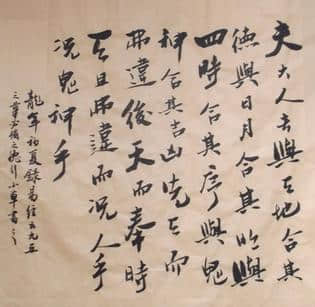 夫大人者與天地合其
德與日月合其明與
四時合其序與鬼
神合其吉凶先天而
弗違後天而奉時
天且弗違而況人乎
況鬼神乎
龍年初夏錄易經九五